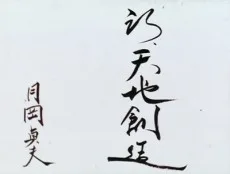 天地創造
月岡貞夫